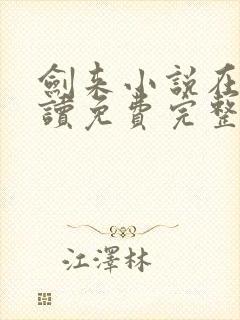 劍来小說在
讀免費完整
江澤林